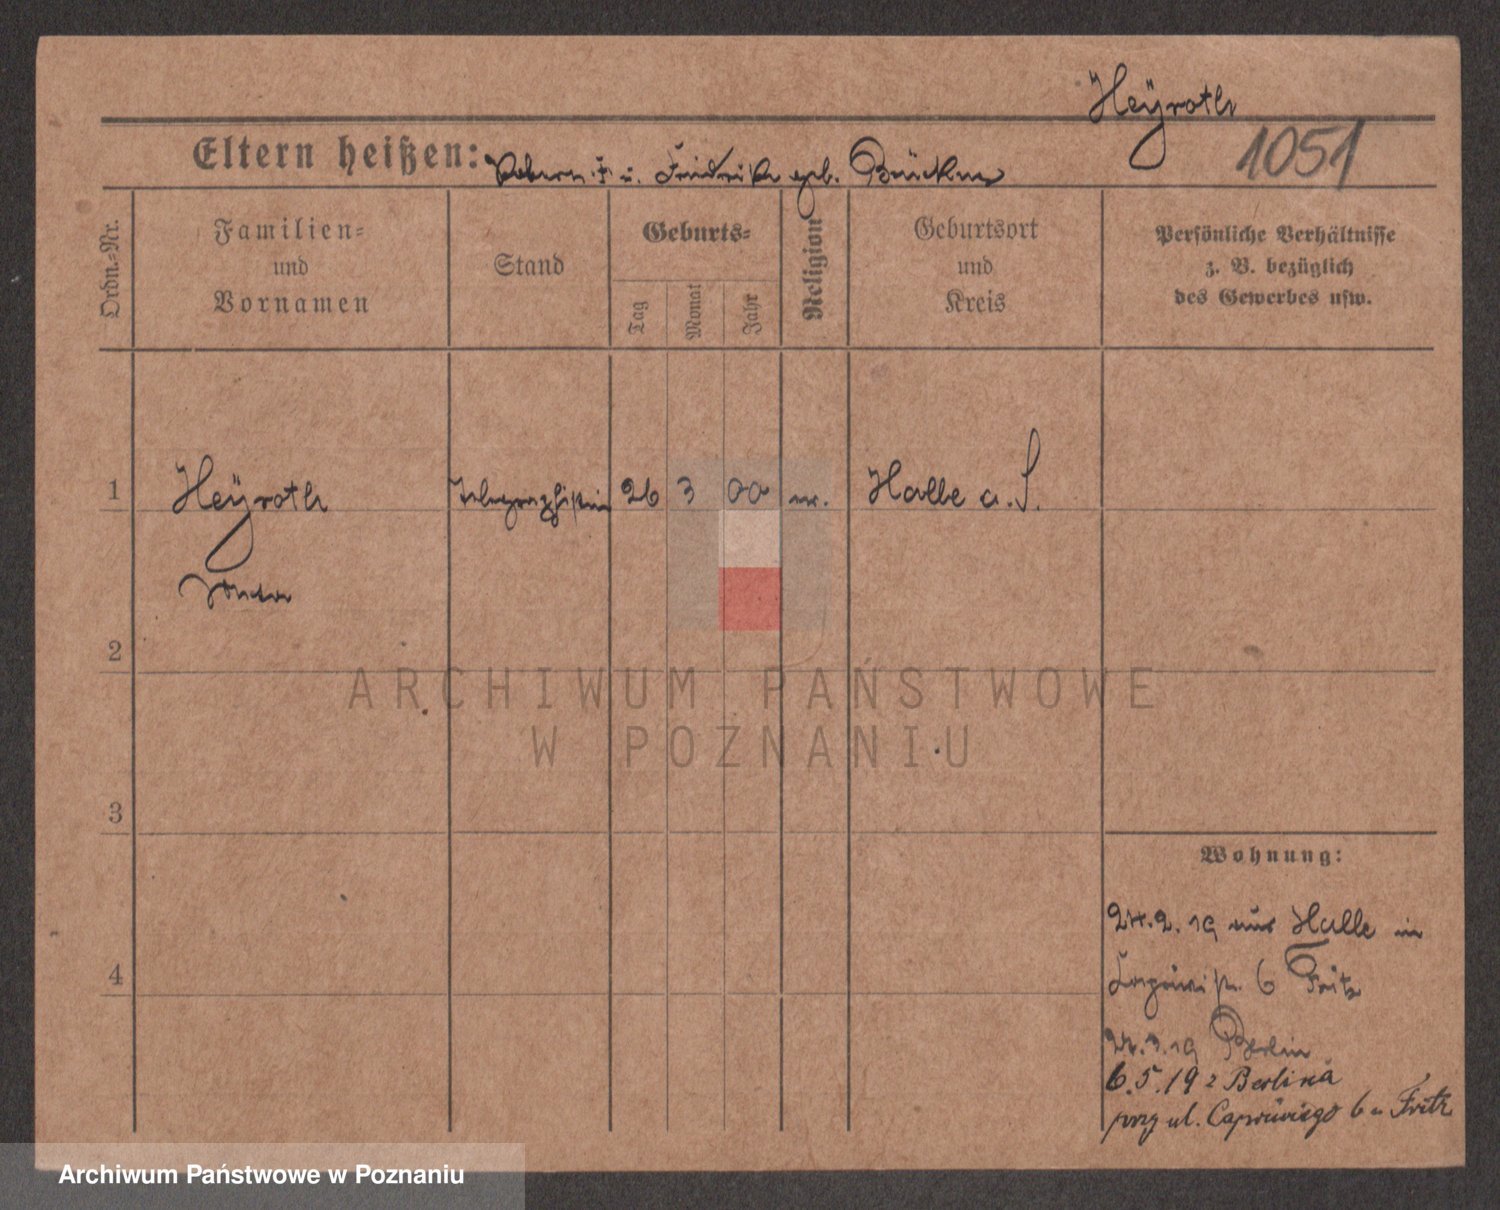 Heÿroth
1051
Eltern heißen: u. Friedrike geb. Brückner
Ordn.-Nr.
Familien-
und
Vornamen
Stand
Geburts-
Tag
Monat
Jahr
Religion
Geburtsort
und
Kreis
Persönliche Verhältnisse
z. B. bezüglich
des Gewerbes usw.
1 Heÿroth Telegraphistin 26 3 00 Halle a. S.
2
3
4
Wohnung:
24.2.19 aus Halle in
6 Fritz
Berlin
6.5.19 z Berlina
przy ul. Capriviego 6 u Fritz
ARCHIWUM PAŃSTWOWE
W POZNANIU
Archiwum Państwowe w Poznaniu